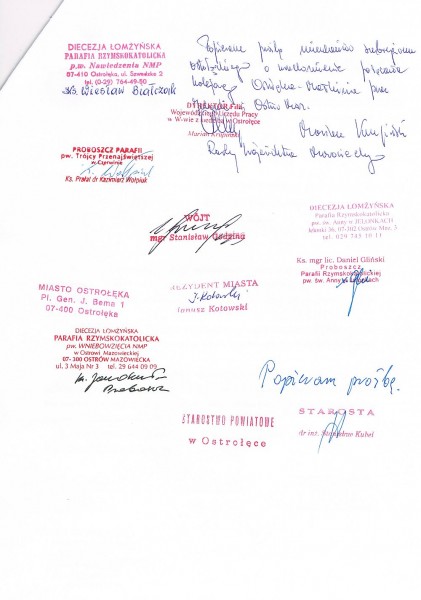 DIECEZJA ŁOMŻYŃSKA
PARAFIA RZYMSKOKATOLICKA
p.w. Nawiedzenia NMP
07-410 Ostrołęka, ul. Szwedzka 2
tel. (0-29) 764-49-50
ks. Wiesław Białczak
Popieram prośbę mieszkańców subregionu
ostrołęckiego o uruchomienie połączenia
kolejowego Ostrołęka - przez
Ostrów Maz.
Wojewódzkiego Urzędu Pracy
w W-wie z siedzibą w Ostrołęce
Marian Krupiński
Marian Krupiński
Radny Województwa Mazowieckiego
PROBOSZCZ PARAFII
pw. Trójcy Przenajświętszej
w Czerwinie
Ks. Prałat dr Kazimierz Wołpiuk
DIECEZJA ŁOMŻYŃSKA
Parafia Rzymskokatolicka
pw. św. Anny w JELONKACH
Jelonki 36, 07-302 Ostrów Maz. 3
tel. 029 745 10 11
WÓJT
mgr Stanisław Godzina
Ks. mgr lic. Daniel Gliński
Proboszcz
Parafii Rzymskokatolickiej
pw. św. Anny w Jelonkach
MIASTO OSTROŁĘKA
Pl. Gen. J. Bema 1
07-400 Ostrołęka
PREZYDENT MIASTA
J. Kotowski
Janusz Kotowski
DIECEZJA ŁOMŻYŃSKA
PARAFIA RZYMSKOKATOLICKA
pw. WNIEBOWZIĘCIA NMP
w Ostrowi Mazowieckiej
07-300 OSTRÓW MAZOWIECKA
ul. 3 Maja Nr 3 tel. 29 644 09 09
Popieram prośbę.
STAROSTWO POWIATOWE
w Ostrołęce
STAROSTA
dr inż. Stanisław Kubeł